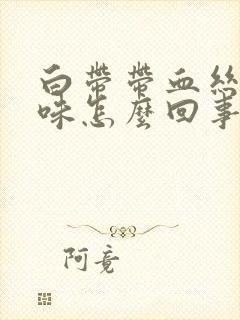 白帶帶血絲
味怎麼回事
阿竟